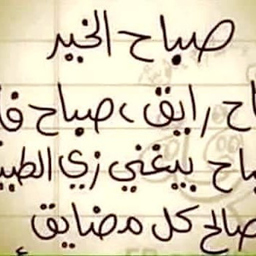 صباح الخير
اح رايق، صباح فا
باح بيغني زي الطيـ
صالح كل مضايق